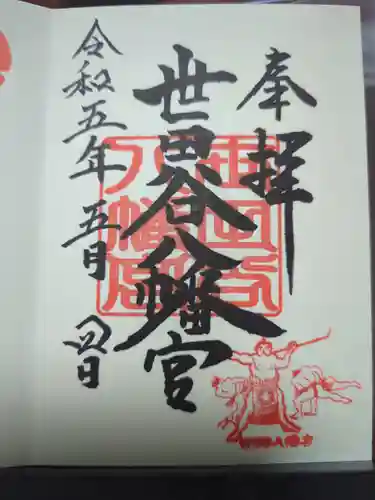 奉拝
世田谷八幡宮
令和五年五月四日
世田谷
八幡宮